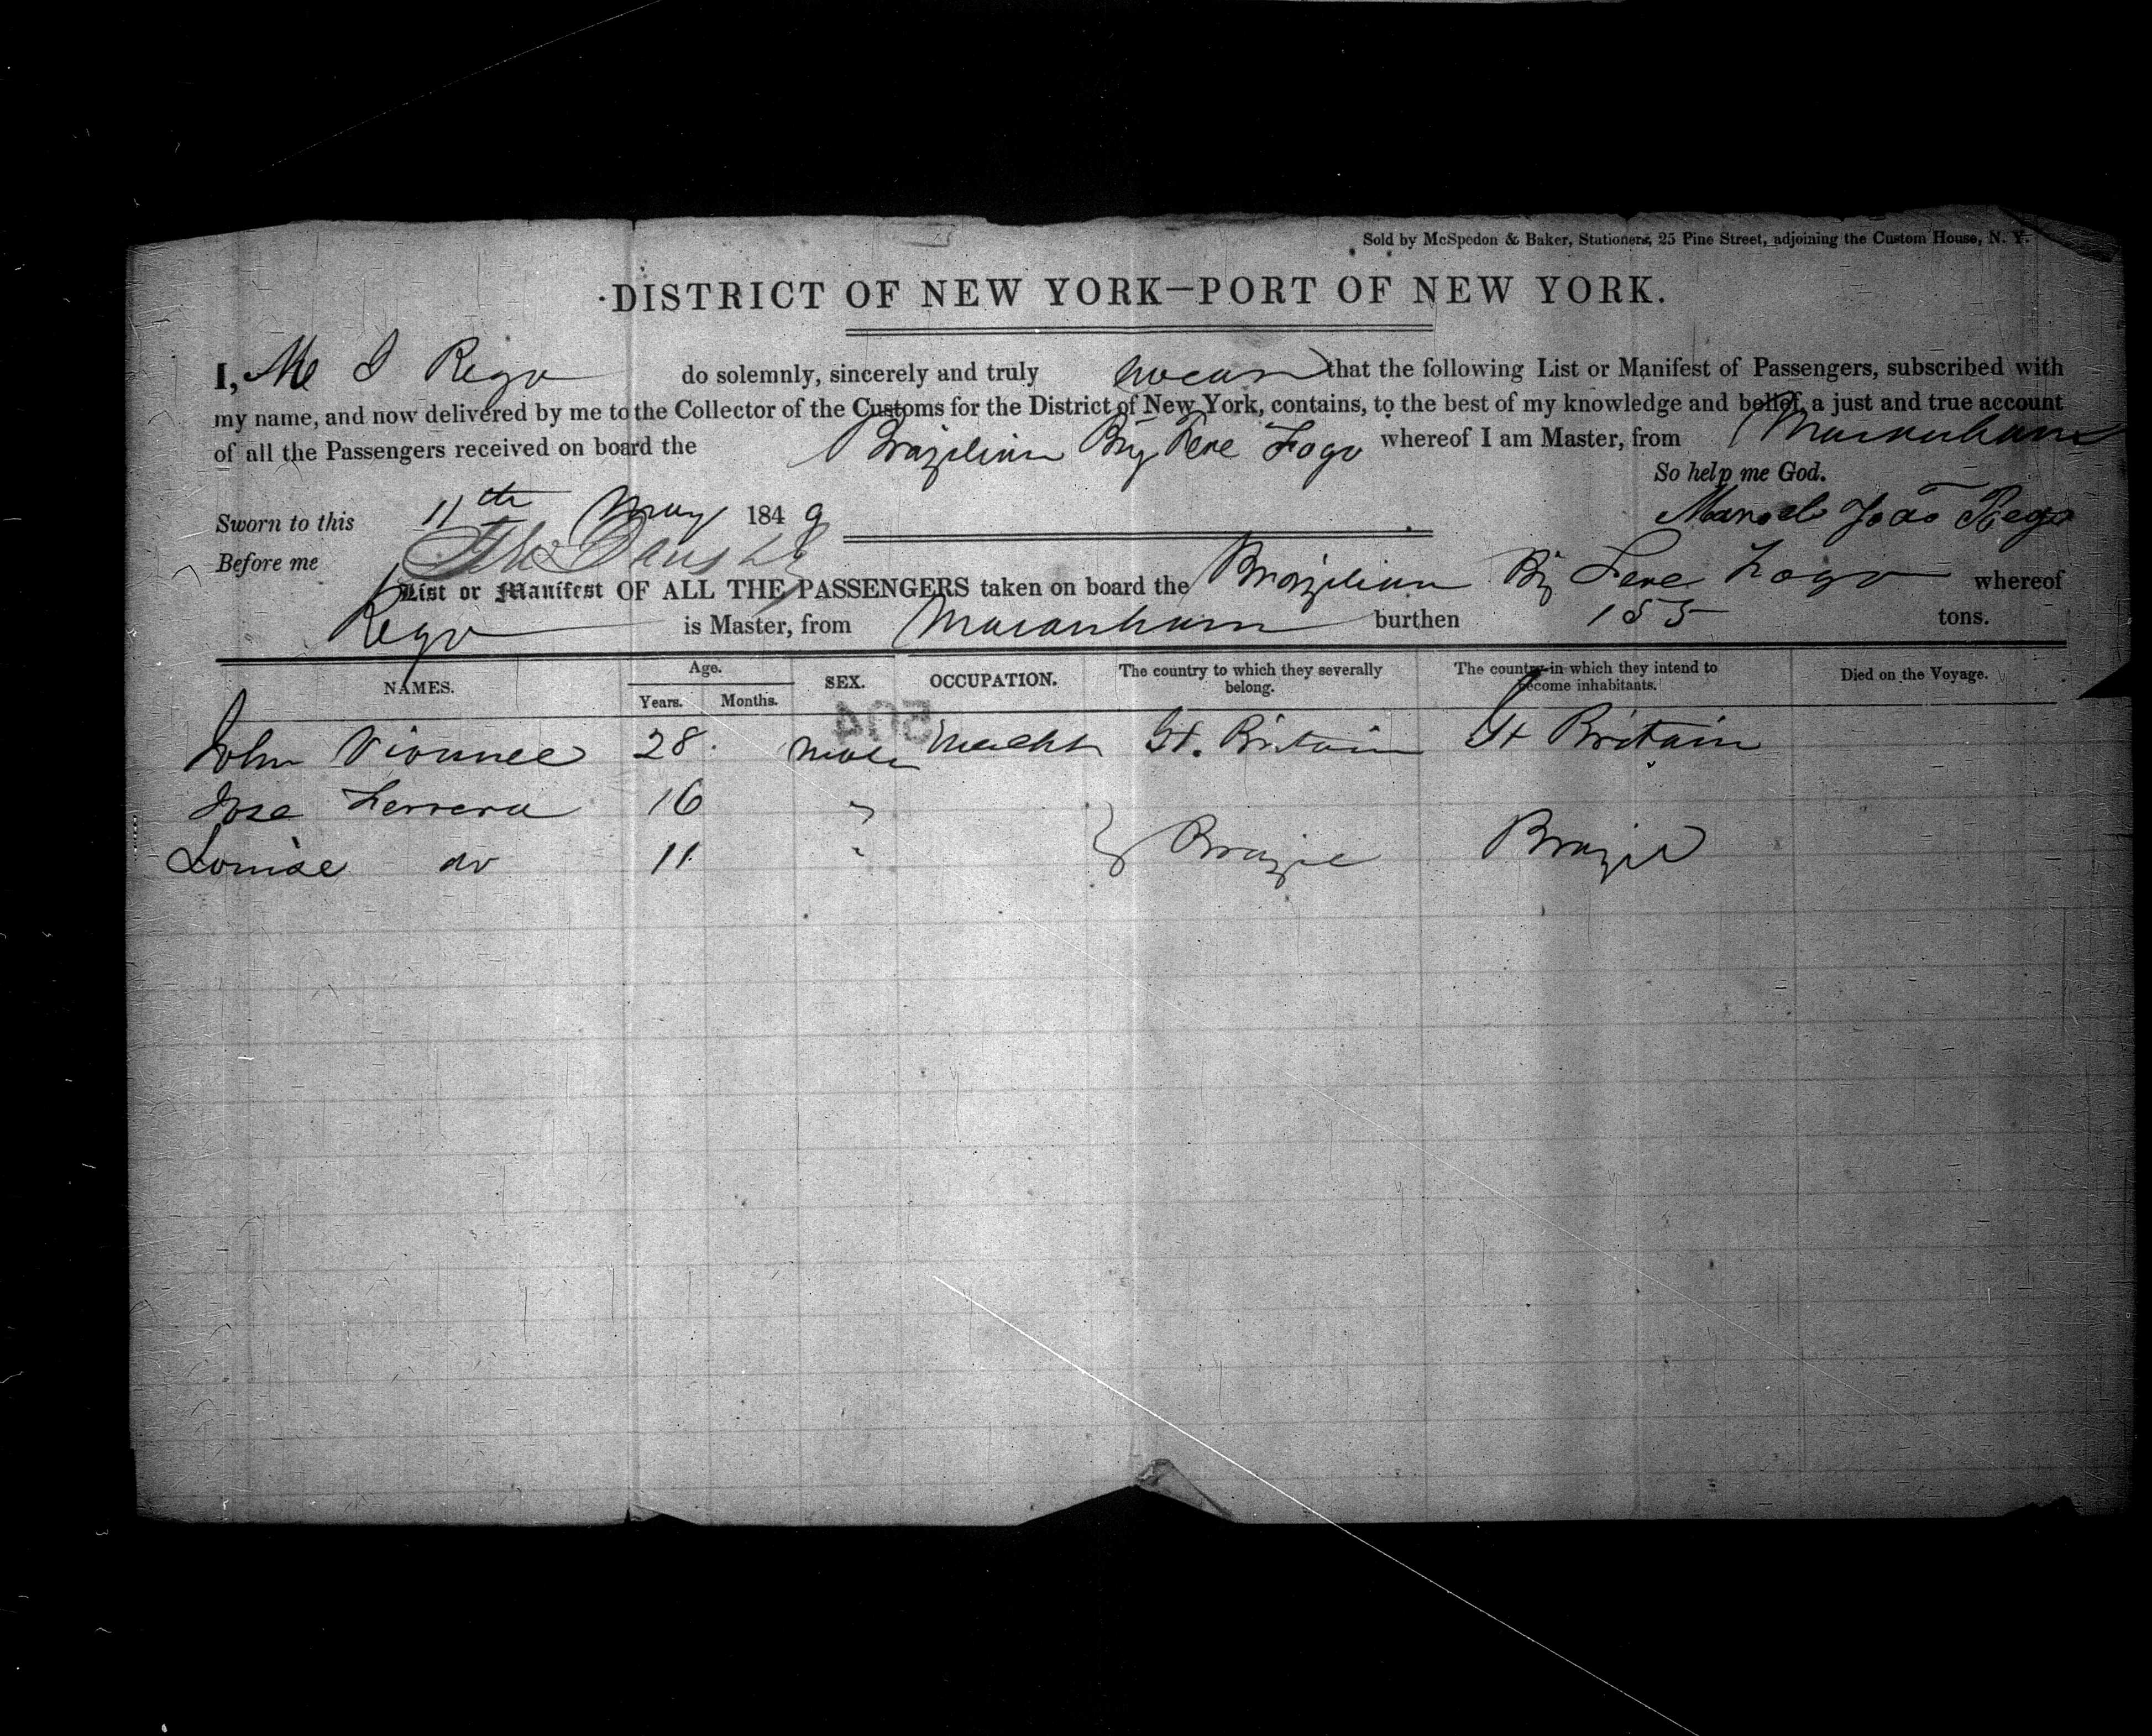 Sold by McSpedon & Baker, Stationers, 25 Pine Street, adjoining the Custom House, N. Y.
DISTRICT OF NEW YORK—PORT OF NEW YORK.
I, M J Rego do solemnly, sincerely and truly swear that the following List or Manifest of Passengers, subscribed with
my name, and now delivered by me to the Collector of the Customs for the District of New York, contains, to the best of my knowledge and belief, a just and true account
of all the Passengers received on board the Brazilian Brig Fogo whereof I am Master, from Maranham
So help me God.
Sworn to this 11th May 1849 Manoel João Rego
Before me
List or Manifest OF ALL THE PASSENGERS taken on board the Brazilian Fogo whereof
Rego is Master, from Maranham burthen 155 tons.
NAMES. Age. Years. Months. SEX. OCCUPATION. The country to which they severally belong. The country in which they intend to become inhabitants. Died on the Voyage.
504
John 28 male Gt. Britain Gt Britain
Jose Ferrera 16 "
Louise do 11 " } Brazil Brazil